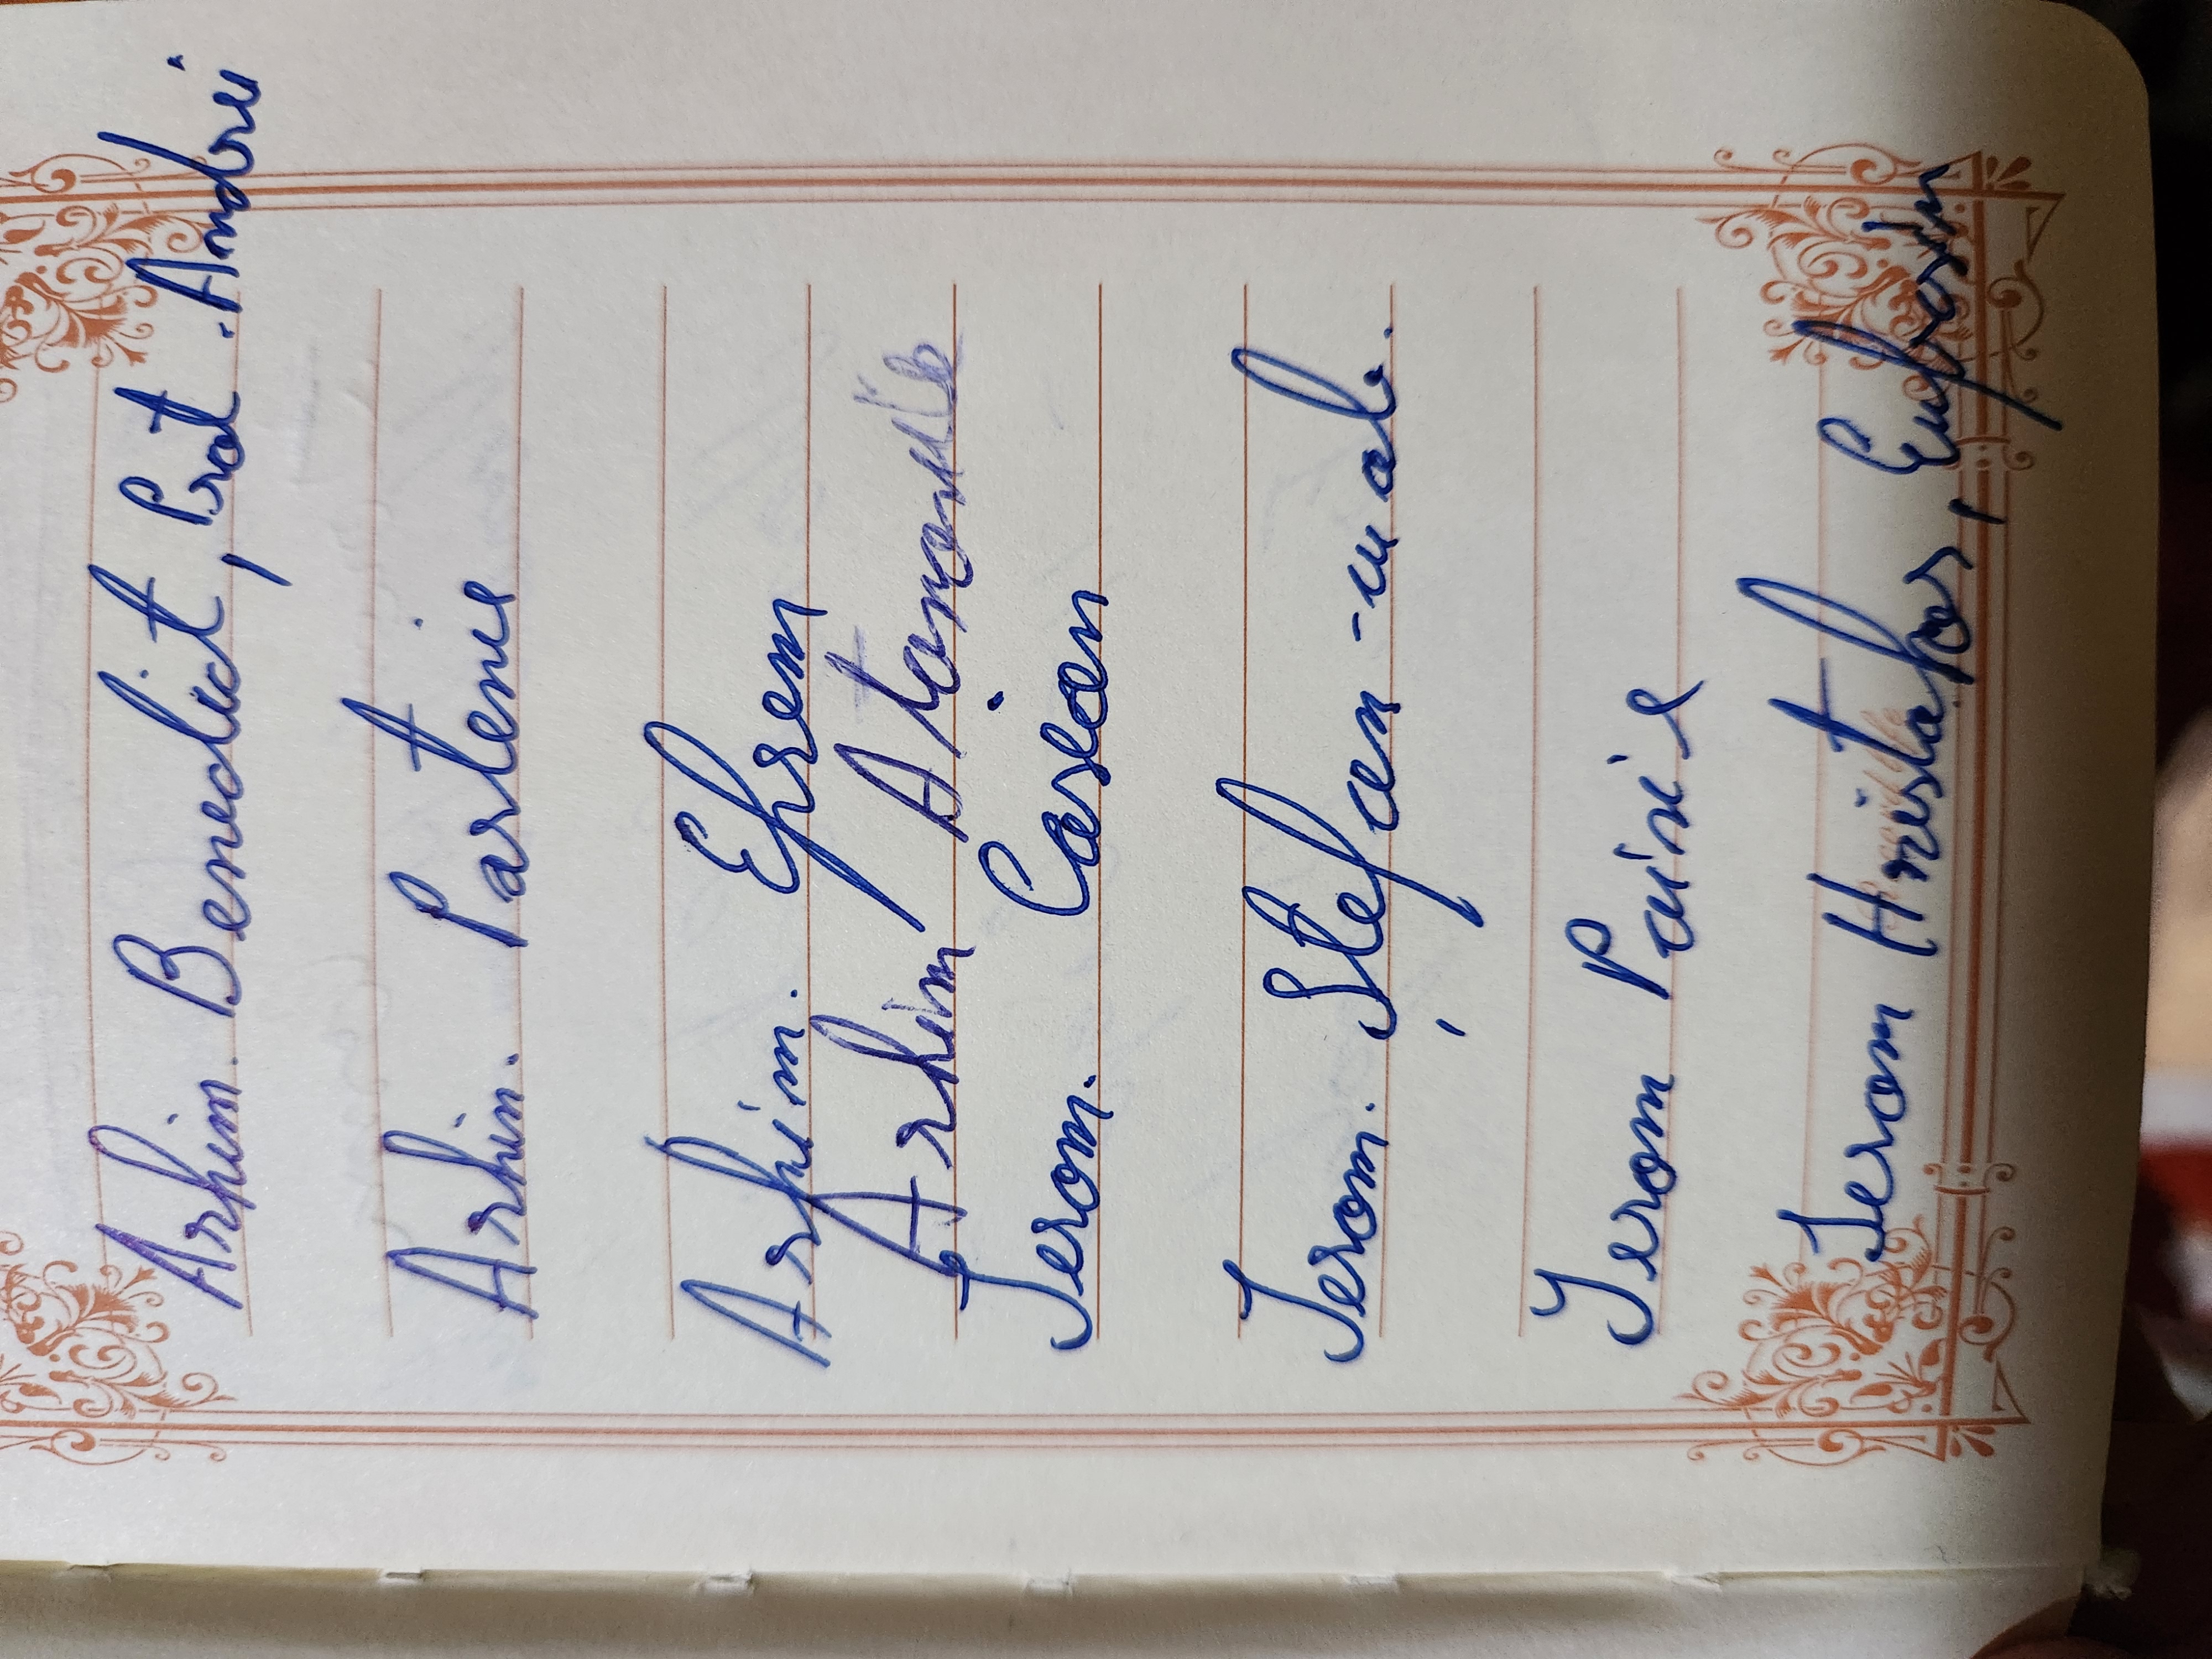 Arhim. Benedict, Prot. Andrei
Arhim. Partenie
Arhim. Efrem
Arhim Atanasie
Ierom. Casian
Ierom. Ștefan -
Ierom Paisie
Ierom Hristofor, Eufrosin